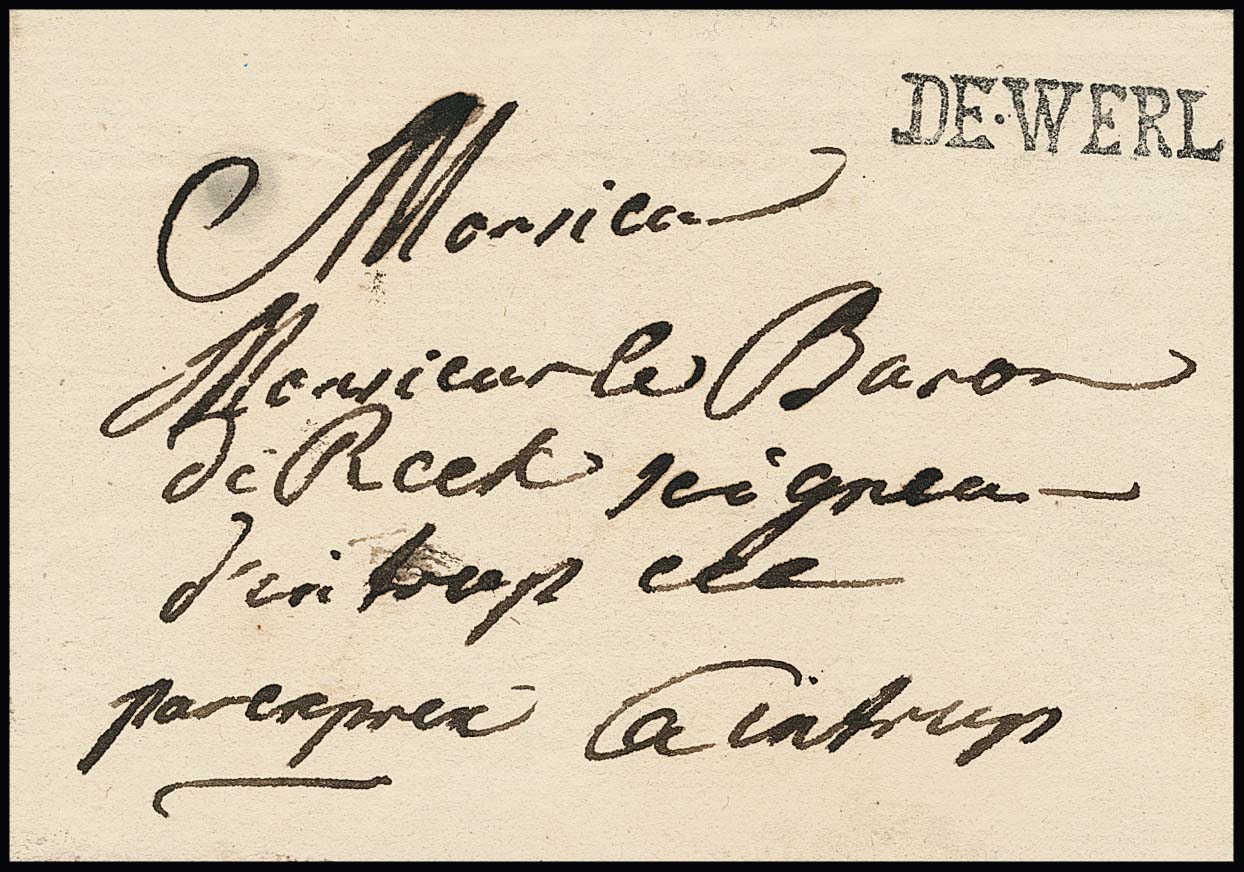 DE·WERL
Monsieur
Monsieur le Baron
de Reck seigneur
d'intrup etc
par expres a intrup